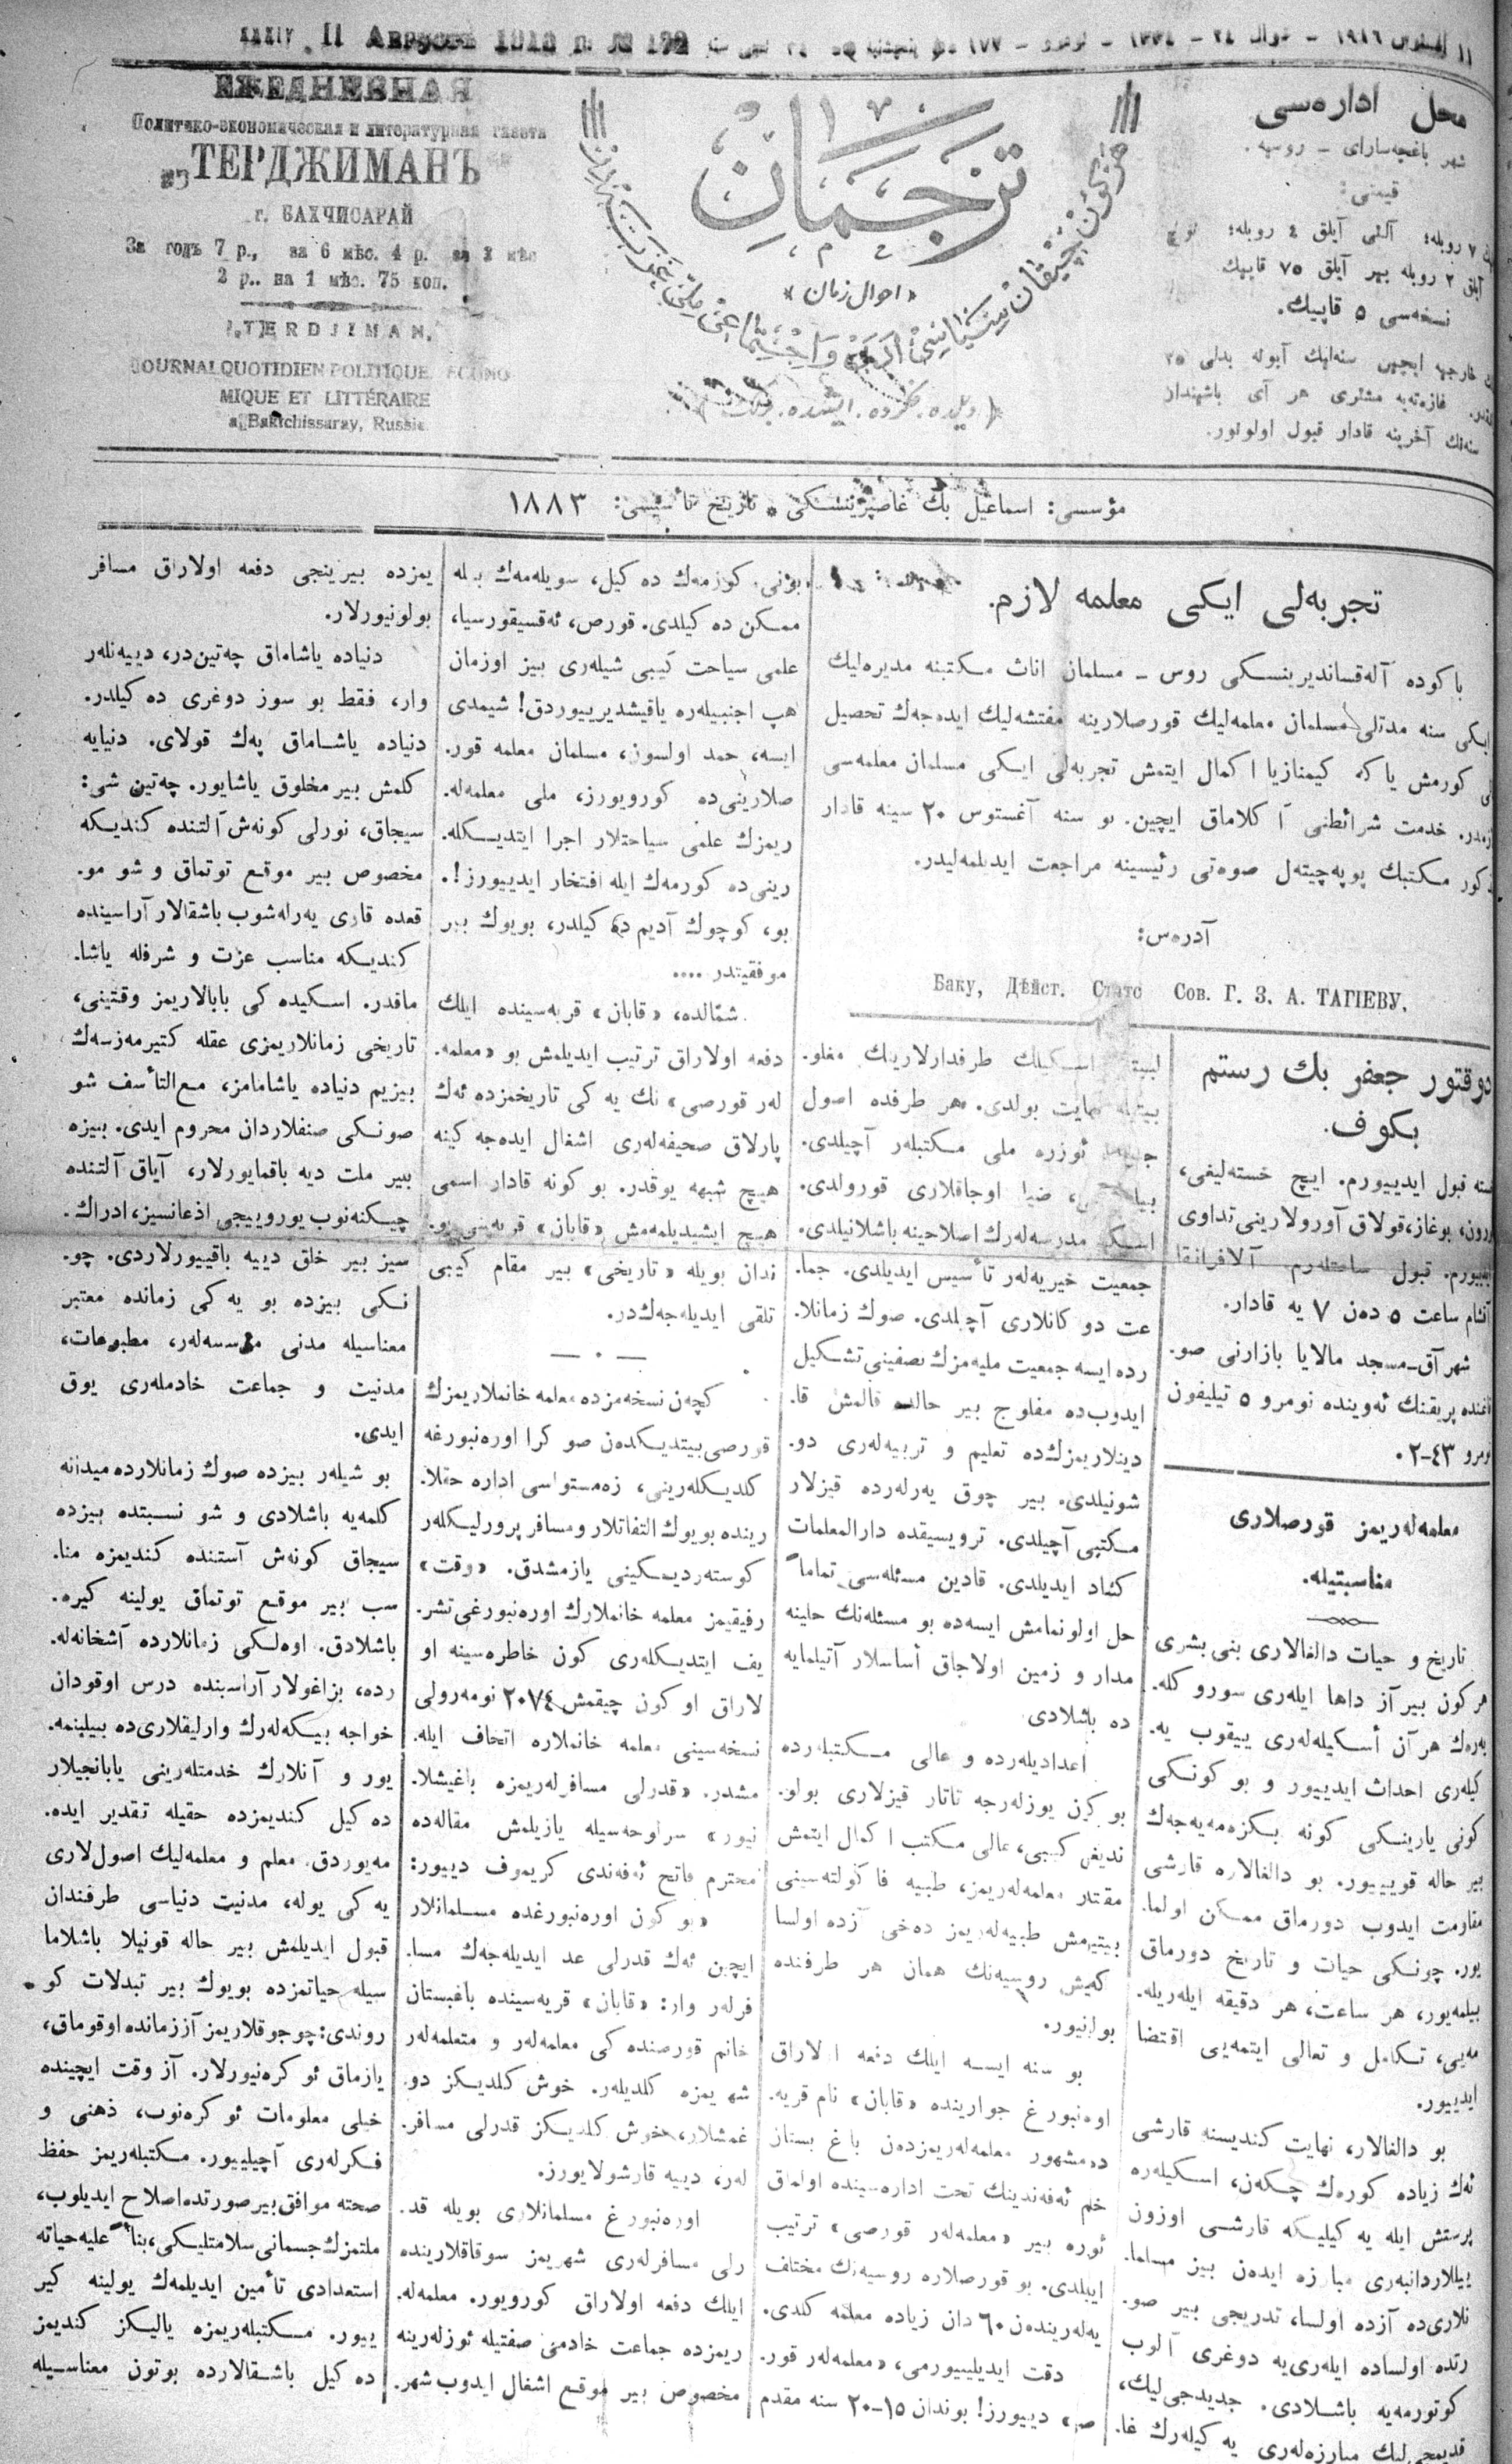 ۱۱ آغستوس ۱۹۱۶ – شوال ۲٤ – ۱۳۳٤ – نومرو – ۱۷۷
XXXIV 11 Августа 1916 г. №
محل اداره‌سی
شهر باغچه‌سارای – روسیه.
قیمتی:
۷ روبله؛ آلتی آیلق ٤ روبله؛ اوچ
آیلق ۲ روبله بیر آیلق ۷۵ قاپیك
نسخه‌سی ۵ قاپیك.
خارجیه ایچین سنه‌لك آبونه بدلی
غازه‌ته‌یه مشتری هر آی باشندان
سنه‌نك آخرینه قادار قبول اولونور.
ترجمان
«احوال زمان»
دیلده، فكرده، ایشده، برلك
ЕЖЕДНЕВНАЯ
Политико-экономическая и литературная газета
ТЕРДЖИМАНЪ
г. БАХЧИСАРАЙ
За годъ 7 р., на 6 мѣс. 4 р. на 3 мѣс
2 р.. на 1 мѣс. 75 коп.
„TERDJIMAN„
JOURNAL QUOTIDIEN POLITIQUE ECONO
MIQUE ET LITTÉRAIRE
a Baktchissaray, Russie
مؤسسی: اسماعیل بك غاصپرینسكی • تاریخ تأسیسی: ۱۸۸۳
تجربه‌لی ایكی معلمه لازم.
باكوده آله‌قساندیرینسكی روس – مسلمان اناث مكتبنه مدیره‌لیك
ایكی سنه مدتلی مسلمان معلمه‌لیك قورصلارینه مفتشه‌لیك ایده‌جه‌ك تحصیل
كورمش یاكه كیمنازیا اكمال ایتمش تجربه‌لی ایكی مسلمان معلمه‌سی
لازمدر. خدمت شرائطنی آكلاماق ایچین. بو سنه آغستوس ۲۰ سینه قادار
مذكور مكتبك پوپه‌چیته‌ل صوه‌تی رئیسینه مراجعت ایدیلمه‌لیدر.
آدره‌س:
Баку, Дѣйст. Статс Сов. Г. З. А. ТАГІЕВУ.
دوقتور جعفر بك رستم
بكوف.
خسته قبول ایدییورم. ایچ خسته‌لیغی،
بورون، بوغاز، قولاق آورولارینی تداوی
ایدییورم. قبول ساعتلرم. آلافرانقا
آقشام ساعت ۵ ده‌ن ۷ یه قادار.
شهر آق‌ـمسجد مالایا بازارنی صو.
قاغنده پریقنك ئه‌وینده نومرو ۵ تیلیفون
نومرو ٤۳–۰۲
معلمه‌له‌ریمز قورصلاری
مناسبتیله.
تاریخ و حیات دالغالاری بنی بشری
هر كون بیر آز داها ایله‌ری سورو كله.
یه‌ره‌ك هر آن أسكیله‌له‌ری ییقوب یه.
كیله‌ری احداث ایدییور و بو كونكی
كونی یارینكی كونه بكزه‌مه‌یه‌جه‌ك
بیر حاله قویییور. بو دالغالاره قارشی
مقاومت ایدوب دورماق ممكن اولما.
یور. چونكی حیات و تاریخ دورماق
بیلمه‌یور، هر ساعت، هر دقیقه ایله‌ریله.
مه‌یی، تكامل و تعالی ایتمه‌یی اقتضا
ایدییور.
بو دالغالار، نهایت كندیسنه قارشی
ئه‌ك زیاده كوره‌ك چكه‌ن، اسكیله‌ره
پرستش ایله یه كیلیكه قارشی اوزون
ییللاردانبه‌ری مبارزه ایده‌ن بیز مسلما.
نلاری‌ده آزده اولسا، تدریجی بیر صو.
رتده اولساده ایله‌ری‌یه دوغری آلوب
كوتورمه‌یه باشلادی. جدیدجی‌لیك،
قدیمجی‌لیك مبارزه‌له‌ری یه كیله‌رك غا.
لبیتله اسكیلك طرفدارلارینك مغلو.
بیتیله نهایت بولدی. هر طرفده اصول
جدیده ئوزره ملی مكتبلر آچیلدی.
ضیا اوجاقلاری قورولدی.
اسكی مدرسه‌له‌رك اصلاحینه باشلانیلدی.
جمعیت خیریه‌له‌ر تأسیس ایدیلدی. جما.
عت دو كانلاری آچیلدی. صوك زمانلا.
رده ایسه جمعیت ملیه‌مزك نصفینی تشكیل
ایدوب‌ده مفلوج بیر حالده قالمش قا.
دینلاریمزك‌ده تعلیم و تربیه‌له‌ری دو.
شونیلدی. بیر چوق یه‌رله‌رده قیزلار
مكتبی آچیلدی. ترویسیقده دارالمعلمات
كشاد ایدیلدی. قادین مسئله‌سی تماماً
حل اولونمامش ایسه‌ده بو مسئله‌نك حلینه
مدار و زمین اولاجاق أساسلار آتیلمایه
ده باشلادی.
اعدادیله‌رده و عالی مكتبلرده
بو كون یوزله‌رجه تاتار قیزلاری بولو.
ندیغی كیبی، عالی مكتب اكمال ایتمش
مقتدر معلمه‌له‌ریمز، طبیه فاكولته‌سینی
بیتیرمش طبیبه‌له‌ریمز ده‌خی آزده اولسا
كه‌نیش روسیه‌نك همان هر طرفنده
بولنیور.
بو سنه ایسه ایلك دفعه اولاراق
اوره‌نبورغ جوارینده «قابان» نام قریه.
ده مشهور معلمه‌له‌ریمزده‌ن باغ بستان
خانم ئه‌فه‌ندینك تحت اداره‌سینده اولماق
ئوزره بیر «معلمه‌له‌ر قورصی» ترتیب
ایدیلدی. بو قورصلاره روسیه‌نك مختلف
یه‌رله‌رینده‌ن ۶۰ دان زیاده معلمه كلدی.
دقت ایدیلییورمی، «معلمه‌له‌ر قور.
صی» دییورز! بوندان ۱۵–۲۰ سنه مقدم
بونی كوزمه‌ك ده كیل، سویله‌مه‌ك بیله
ممكن ده كیلدی. قورص، ئه‌قسیقورسیا،
علمی سیاحت كیبی شیله‌ری بیز اوزمان
هپ اجنبیله‌ره یاقیشدیرییوردق! شیمدی
ایسه، حمد اولسون، مسلمان معلمه قور.
صلارینی‌ده كورویورز، ملی معلمه‌له.
ریمزك علمی سیاحتلار اجرا ایتدیكله.
رینی‌ده كورمه‌ك ایله افتخار ایدییورز!.
بو، كوچوك آدیم ده كیلدر، بویوك بیر
موفقیتدر ....
شمالده، «قابان» قریه‌سینده ایلك
دفعه اولاراق ترتیب ایدیلمش بو «معلمه.
له‌ر قورصی» نك یه كی تاریخمزده ئه‌ك
پارلاق صحیفه‌له‌ری اشغال ایده‌جه كینه
هیچ شبهه یوقدر. بو كونه قادار اسمی
هیچ ایشیدیلمه‌مش «قابان» قریه‌سی بو.
ندان بویله «تاریخی» بیر مقام كیبی
تلقی ایدیله‌جه‌ك‌در.
كچه‌ن نسخه‌مزده معلمه خانملاریمزك
قورصی بیتدیكده‌ن صوكرا اوره‌نبورغه
كلدیكله‌رینی، زه‌مستواسی اداره حقلا.
رینده بویوك التفاتلار و مسافرپرورلیكلر
كوسته‌ردیكینی یازمشدق. «وقت»
رفیقیمز معلمه خانملارك اوره‌نبورغی تشر.
یف ایتدیكله‌ری كون خاطره‌سینه او
لاراق او كون چیقمش ۲۰۷٤ نومه‌رولی
نسخه‌سینی معلمه خانملاره اتحاف ایله.
مشدر. «قدرلی مسافرله‌ریمزه باغیشلا.
نیور» سراوحه‌سیله یازیلمش مقاله‌ده
محترم فاتح ئه‌فه‌ندی كریموف دییور:
«بو كون اوره‌نبورغده مسلمانلار
ایچین ئه‌ك قدرلی عد ایدیله‌جه‌ك مسا.
فرله‌ر وار: «قابان» قریه‌سینده باغبستان
خانم قورصنده كی معلمه‌له‌ر و متعلمه‌له‌ر
شهریمزه كلدیله‌ر. خوش كلدیكز دو.
غمشلار، خوش كلدیكز قدرلی مسافر.
له‌ر، دییه قارشولایورز.
اوره‌نبورغ مسلمانلاری بویله قد.
رلی مسافرله‌ری شهریمز سوقاقلارینده
ایلك دفعه اولاراق كورویور. معلمه‌له.
ریمزده جماعت خادمی صفتیله ئوزله‌رینه
مخصوص بیر موقع اشغال ایدوب شهر.
یمزده بیرینجی دفعه اولاراق مسافر
بولونیورلار.
دنیاده یاشاماق چه‌تین‌در، دییه‌نله‌ر
وار، فقط بو سوز دوغری ده كیلدر.
دنیاده یاشاماق په‌ك قولای. دنیایه
كلمش بیر مخلوق یاشایور. چه‌تین شی:
سیجاق، نورلی كونه‌ش آلتنده كندیكه
مخصوص بیر موقع توتماق و شو مو.
قعده قاری یه‌رله‌شوب باشقالار آراسینده
كندیكه مناسب عزت و شرفله یاشا.
ماقدر. اسكیده كی بابالاریمز وقتینی،
تاریخی زمانلاریمزی عقله كتیرمه‌زسه‌ك
بیزیم دنیاده یاشامامز، مع‌التأسف شو
صونكی صنفلاردان محروم ایدی. بیزه
بیر ملت دیه باقمایورلار، آیاق آلتنده
چیكنه‌نوب یوروییجی اذعانسیز، ادراك.
سیز بیر خلق دییه باقییورلاردی. چو.
نكی بیزده بو یه كی زمانده معتبر
معناسیله مدنی مؤسسه‌له‌ر، مطبوعات،
مدنیت و جماعت خادمله‌ری یوق
ایدی.
بو شیله‌ر بیزده صوك زمانلارده میدانه
كلمه‌یه باشلادی و شو نسبتده بیزده
سیجاق كونه‌ش آستنده كندیمزه منا.
سب بیر موقع توتماق یولینه كیره.
باشلادق. اوه‌لكی زمانلارده آشخانه‌له.
رده، بزاغولار آراسینده درس اوقودان
خواجه بیكه‌له‌رك وارلیقلاری‌ده بیلینمه.
یور و آنلارك خدمتله‌رینی یابانجیلار
ده كیل كندیمزده حقیله تقدیر ایده.
مه‌یوردق. معلم و معلمه‌لیك اصول‌لاری
یه كی یوله، مدنیت دنیاسی طرفندان
قبول ایدیلمش بیر حاله قونیلا باشلاما
سیله حیاتمزده بویوك بیر تبدلات كو
روندی: چوجوقلاریمز آز زمانده اوقوماق،
یازماق ئو كره‌نیورلار. آز وقت ایچینده
خیلی معلومات ئو كره‌نوب، ذهنی و
فكرله‌ری آچیلییور. مكتبله‌ریمز حفظ
صحته موافق بیر صورتده اصلاح ایدیلوب،
ملتمزك جسمانی سلامتلیكی، بناً علیه حیاته
استعدادی تأمین ایدیلمه‌ك یولینه كیر
ییور. مكتبله‌ریمزه یالیكز كندیمز
ده كیل باشقالارده بوتون معناسیله